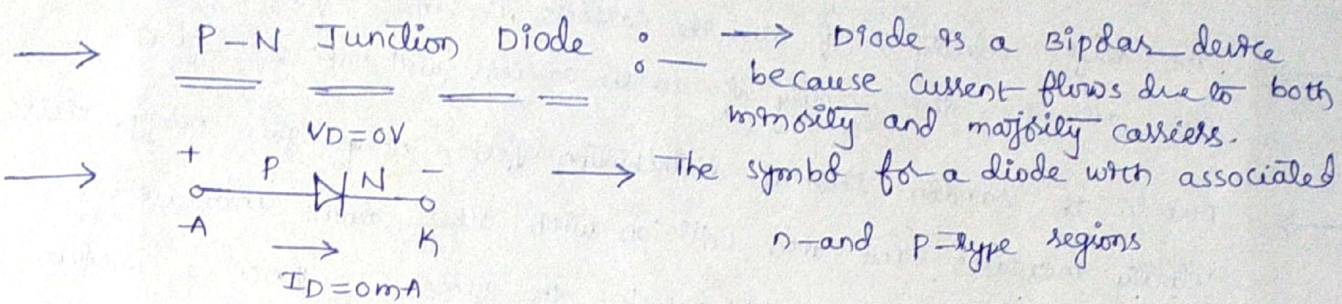 → P-N Junction Diode :- → Diode is a Bipolar device
because current flows due to both
minority and majority carriers.
VD=0V
→ + P N - → The symbol for a diode with associated
A K n-and p-type regions
→
ID=0mA